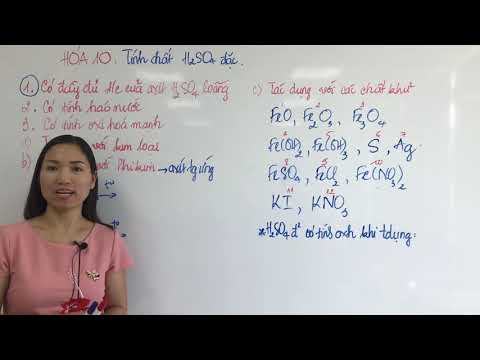 HÓA 10: Tính chất H₂SO₄ đặc.
① Có đầy đủ t/c của axit H₂SO₄ loãng
2. Có tính háo nước
3. Có tính oxi hoá mạnh
với kim loại
b)
với Phi kim → axit tg ứng
t°
c) Tác dụng với các chất khử
1 2 3
FeO, Fe₂O₃, Fe₃O₄
4 5 6 7
Fe(OH)₂, Fe(OH)₃, S, Ag
8 9 10
FeSO₄, FeCl₂, Fe(NO₃)₂
11 12
KI, KNO₃
* H₂SO₄ đ² có tính oxh khi t/dụng: